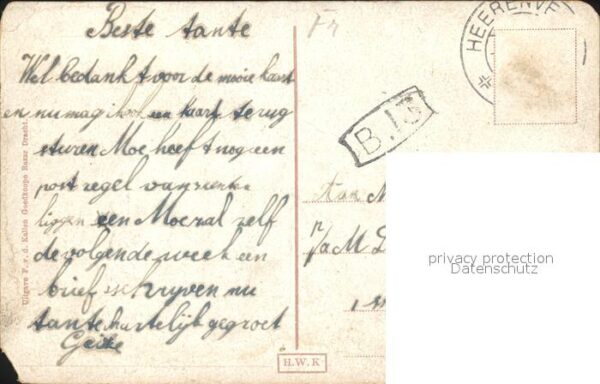 Beste tante
Wel bedankt voor de mooie kaart
en nu mag ik ook een kaart terug
sturen Moe heeft nog een
post zegel van
liggen een Moe zal zelf
de volgende week een
brief schryven nu
tante hartelijk gegroet
Fr
HEERENVE
B.13
Aan M
p/a M L
Uitgave F. v. d. Kallen Goedkoope Bazar Dracht
H.W.K
privacy protection
Datenschutz